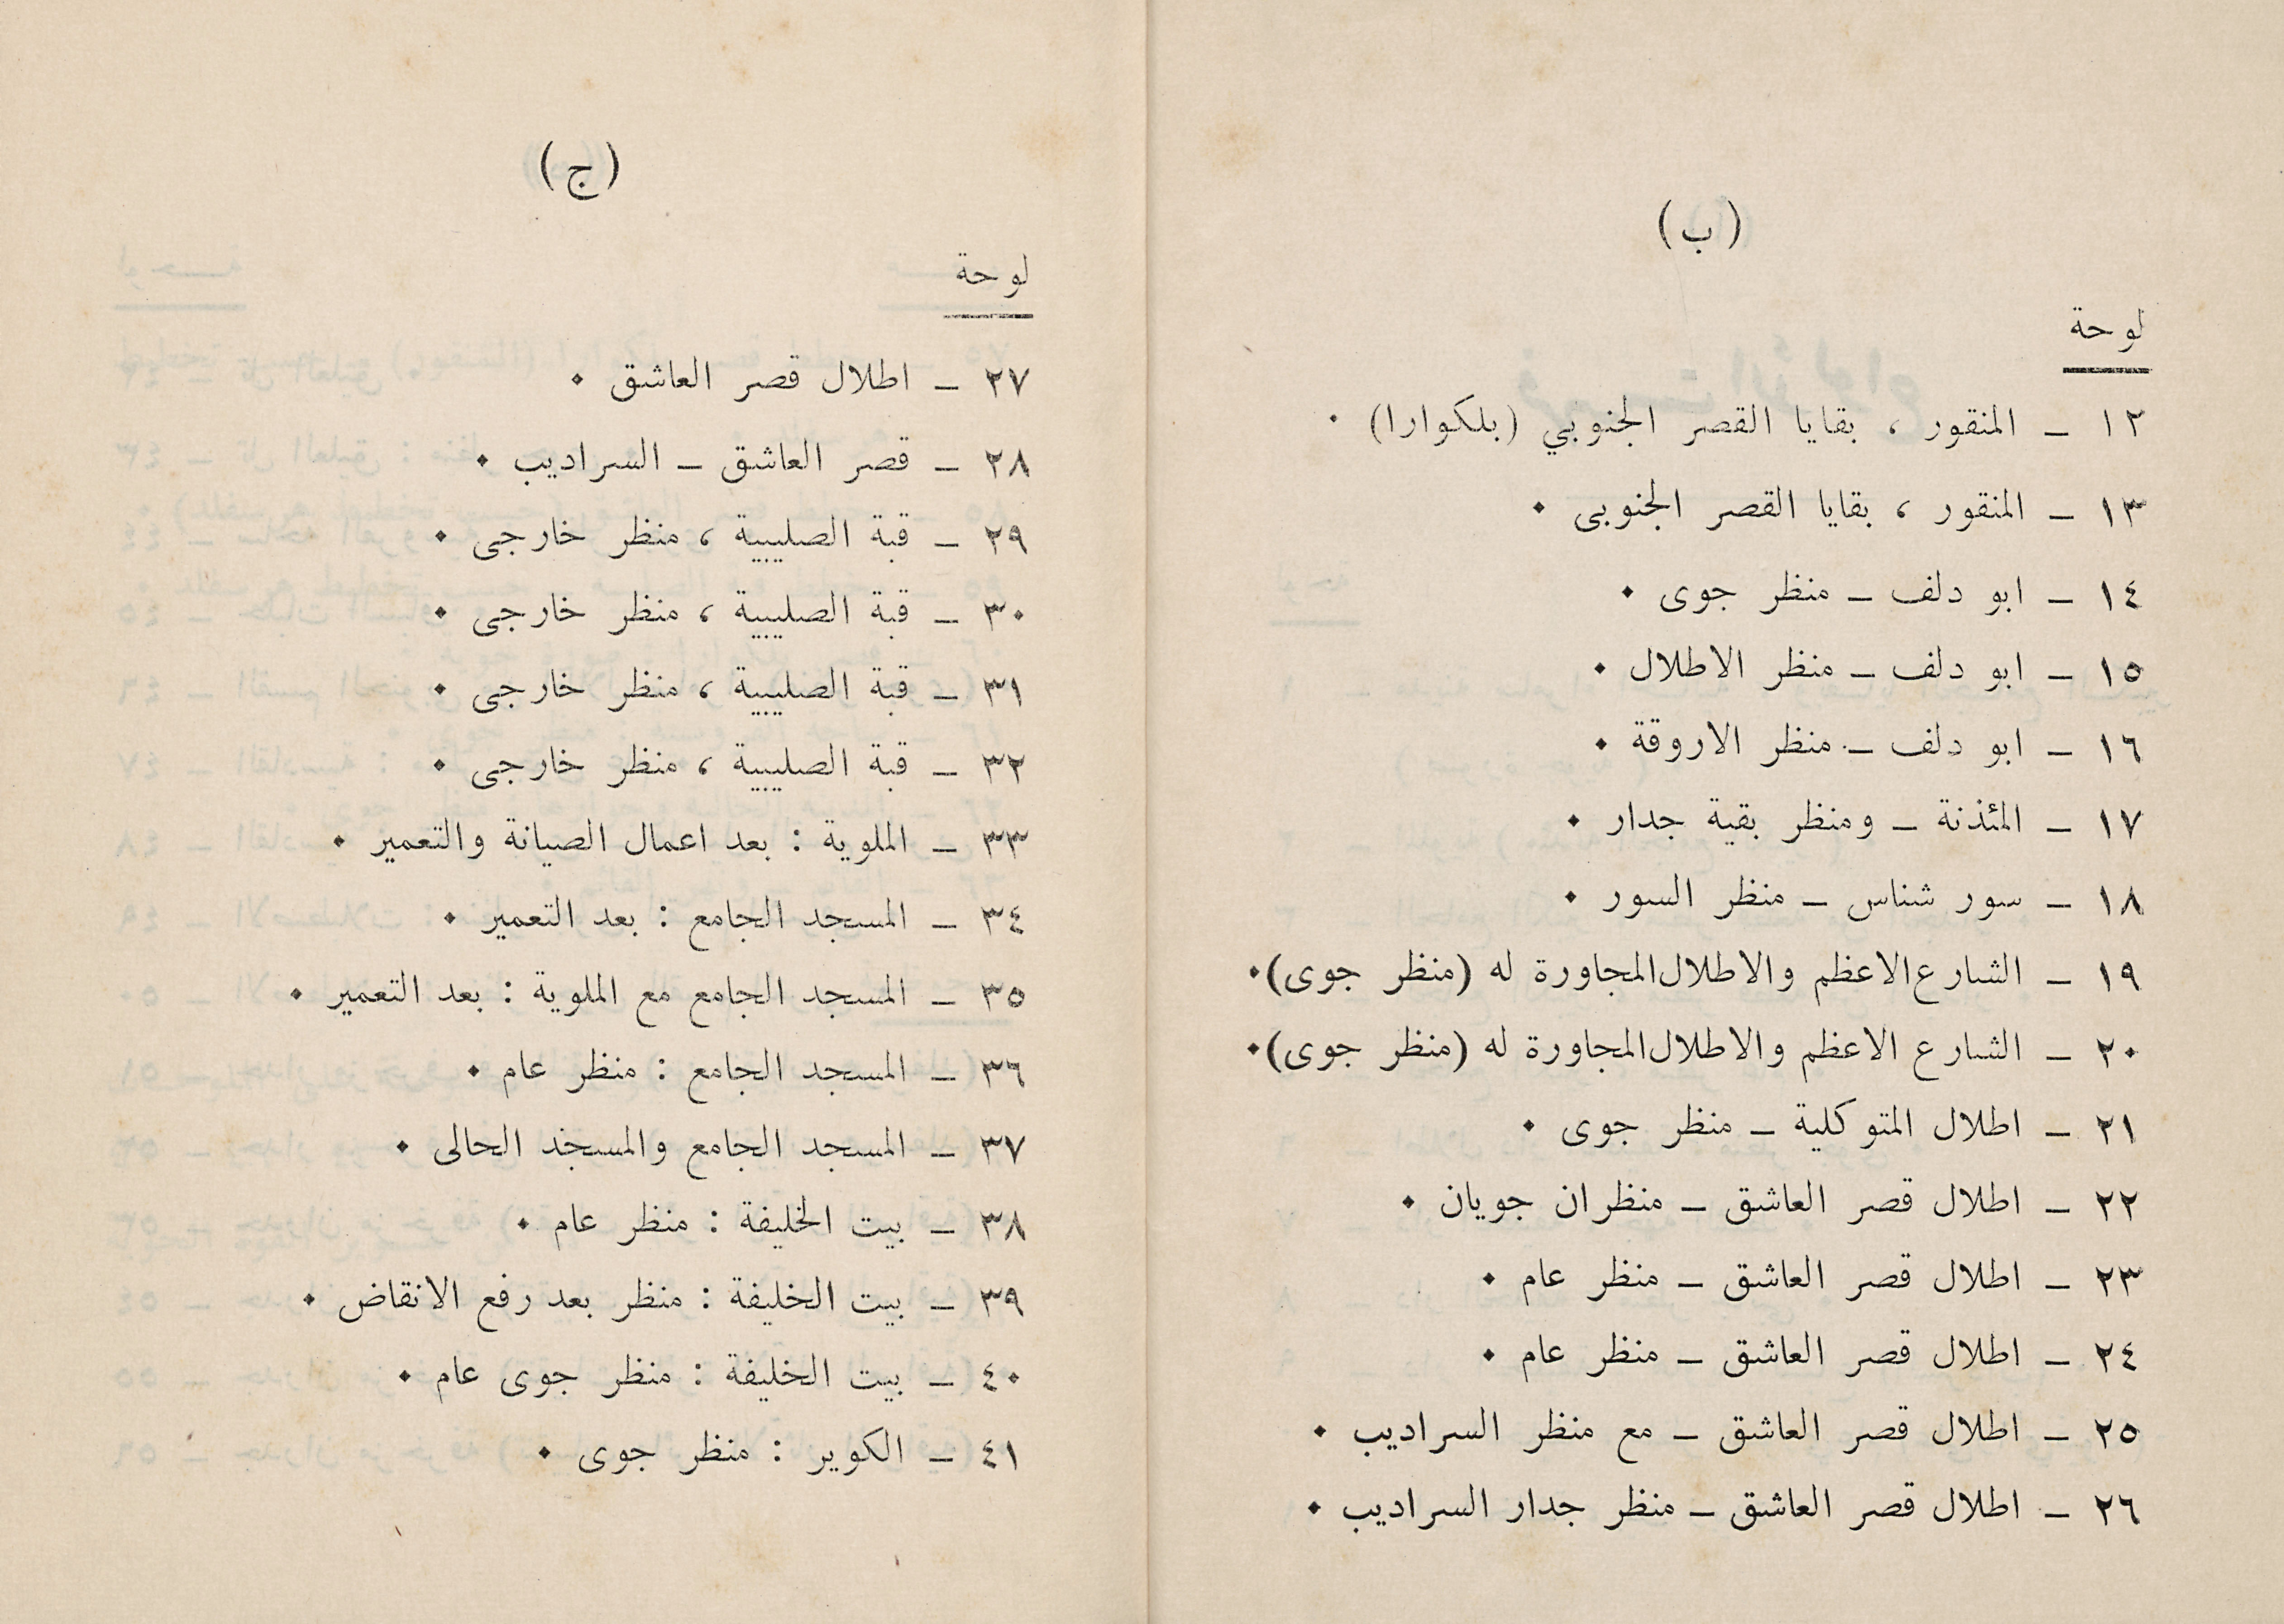 (ب)
لوحة
١٢ – المنقور ، بقايا القصر الجنوبي (بلكوارا) ٠
١٣ – المنقور ، بقايا القصر الجنوبى ٠
١٤ – ابو دلف – منظر جوى ٠
١٥ – ابو دلف – منظر الاطلال ٠
١٦ – ابو دلف – منظر الاروقة ٠
١٧ – المئذنة – ومنظر بقية جدار ٠
١٨ – سور شناس – منظر السور ٠
١٩ – الشارع الاعظم والاطلال المجاورة له (منظر جوى)٠
٢٠ – الشارع الاعظم والاطلال المجاورة له (منظر جوى)٠
٢١ – اطلال المتوكلية – منظر جوى ٠
٢٢ – اطلال قصر العاشق – منظران جويان ٠
٢٣ – اطلال قصر العاشق – منظر عام ٠
٢٤ – اطلال قصر العاشق – منظر عام ٠
٢٥ – اطلال قصر العاشق – مع منظر السراديب ٠
٢٦ – اطلال قصر العاشق – منظر جدار السراديب ٠
(ج)
لوحة
٢٧ – اطلال قصر العاشق ٠
٢٨ – قصر العاشق – السراديب ٠
٢٩ – قبة الصليبية ، منظر خارجى ٠
٣٠ – قبة الصليبية ، منظر خارجى ٠
٣١ – قبة الصليبية ، منظر خارجى ٠
٣٢ – قبة الصليبية ، منظر خارجى ٠
٣٣ – الملوية : بعد اعمال الصيانة والتعمير ٠
٣٤ – المسجد الجامع : بعد التعمير ٠
٣٥ – المسجد الجامع مع الملوية : بعد التعمير ٠
٣٦ – المسجد الجامع : منظر عام ٠
٣٧ – المسجد الجامع والمسجد الحالى ٠
٣٨ – بيت الخليفة : منظر عام ٠
٣٩ – بيت الخليفة : منظر بعد رفع الانقاض ٠
٤٠ – بيت الخليفة : منظر جوى عام ٠
٤١ – الكوير : منظر جوى ٠